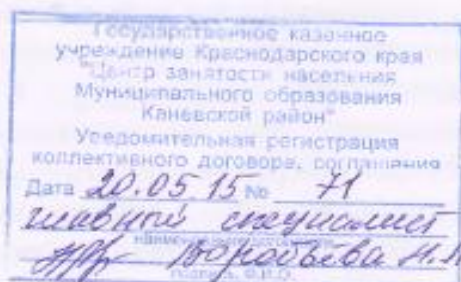 Государственное казенное
учреждение Краснодарского края
"Центр занятости населения
Муниципального образования
Каневской район"
Уведомительная регистрация
коллективного договора, соглашения
Дата 20.05 15 № 71
главный специалист
Воробьева Н.
подпись, Ф.И.О.